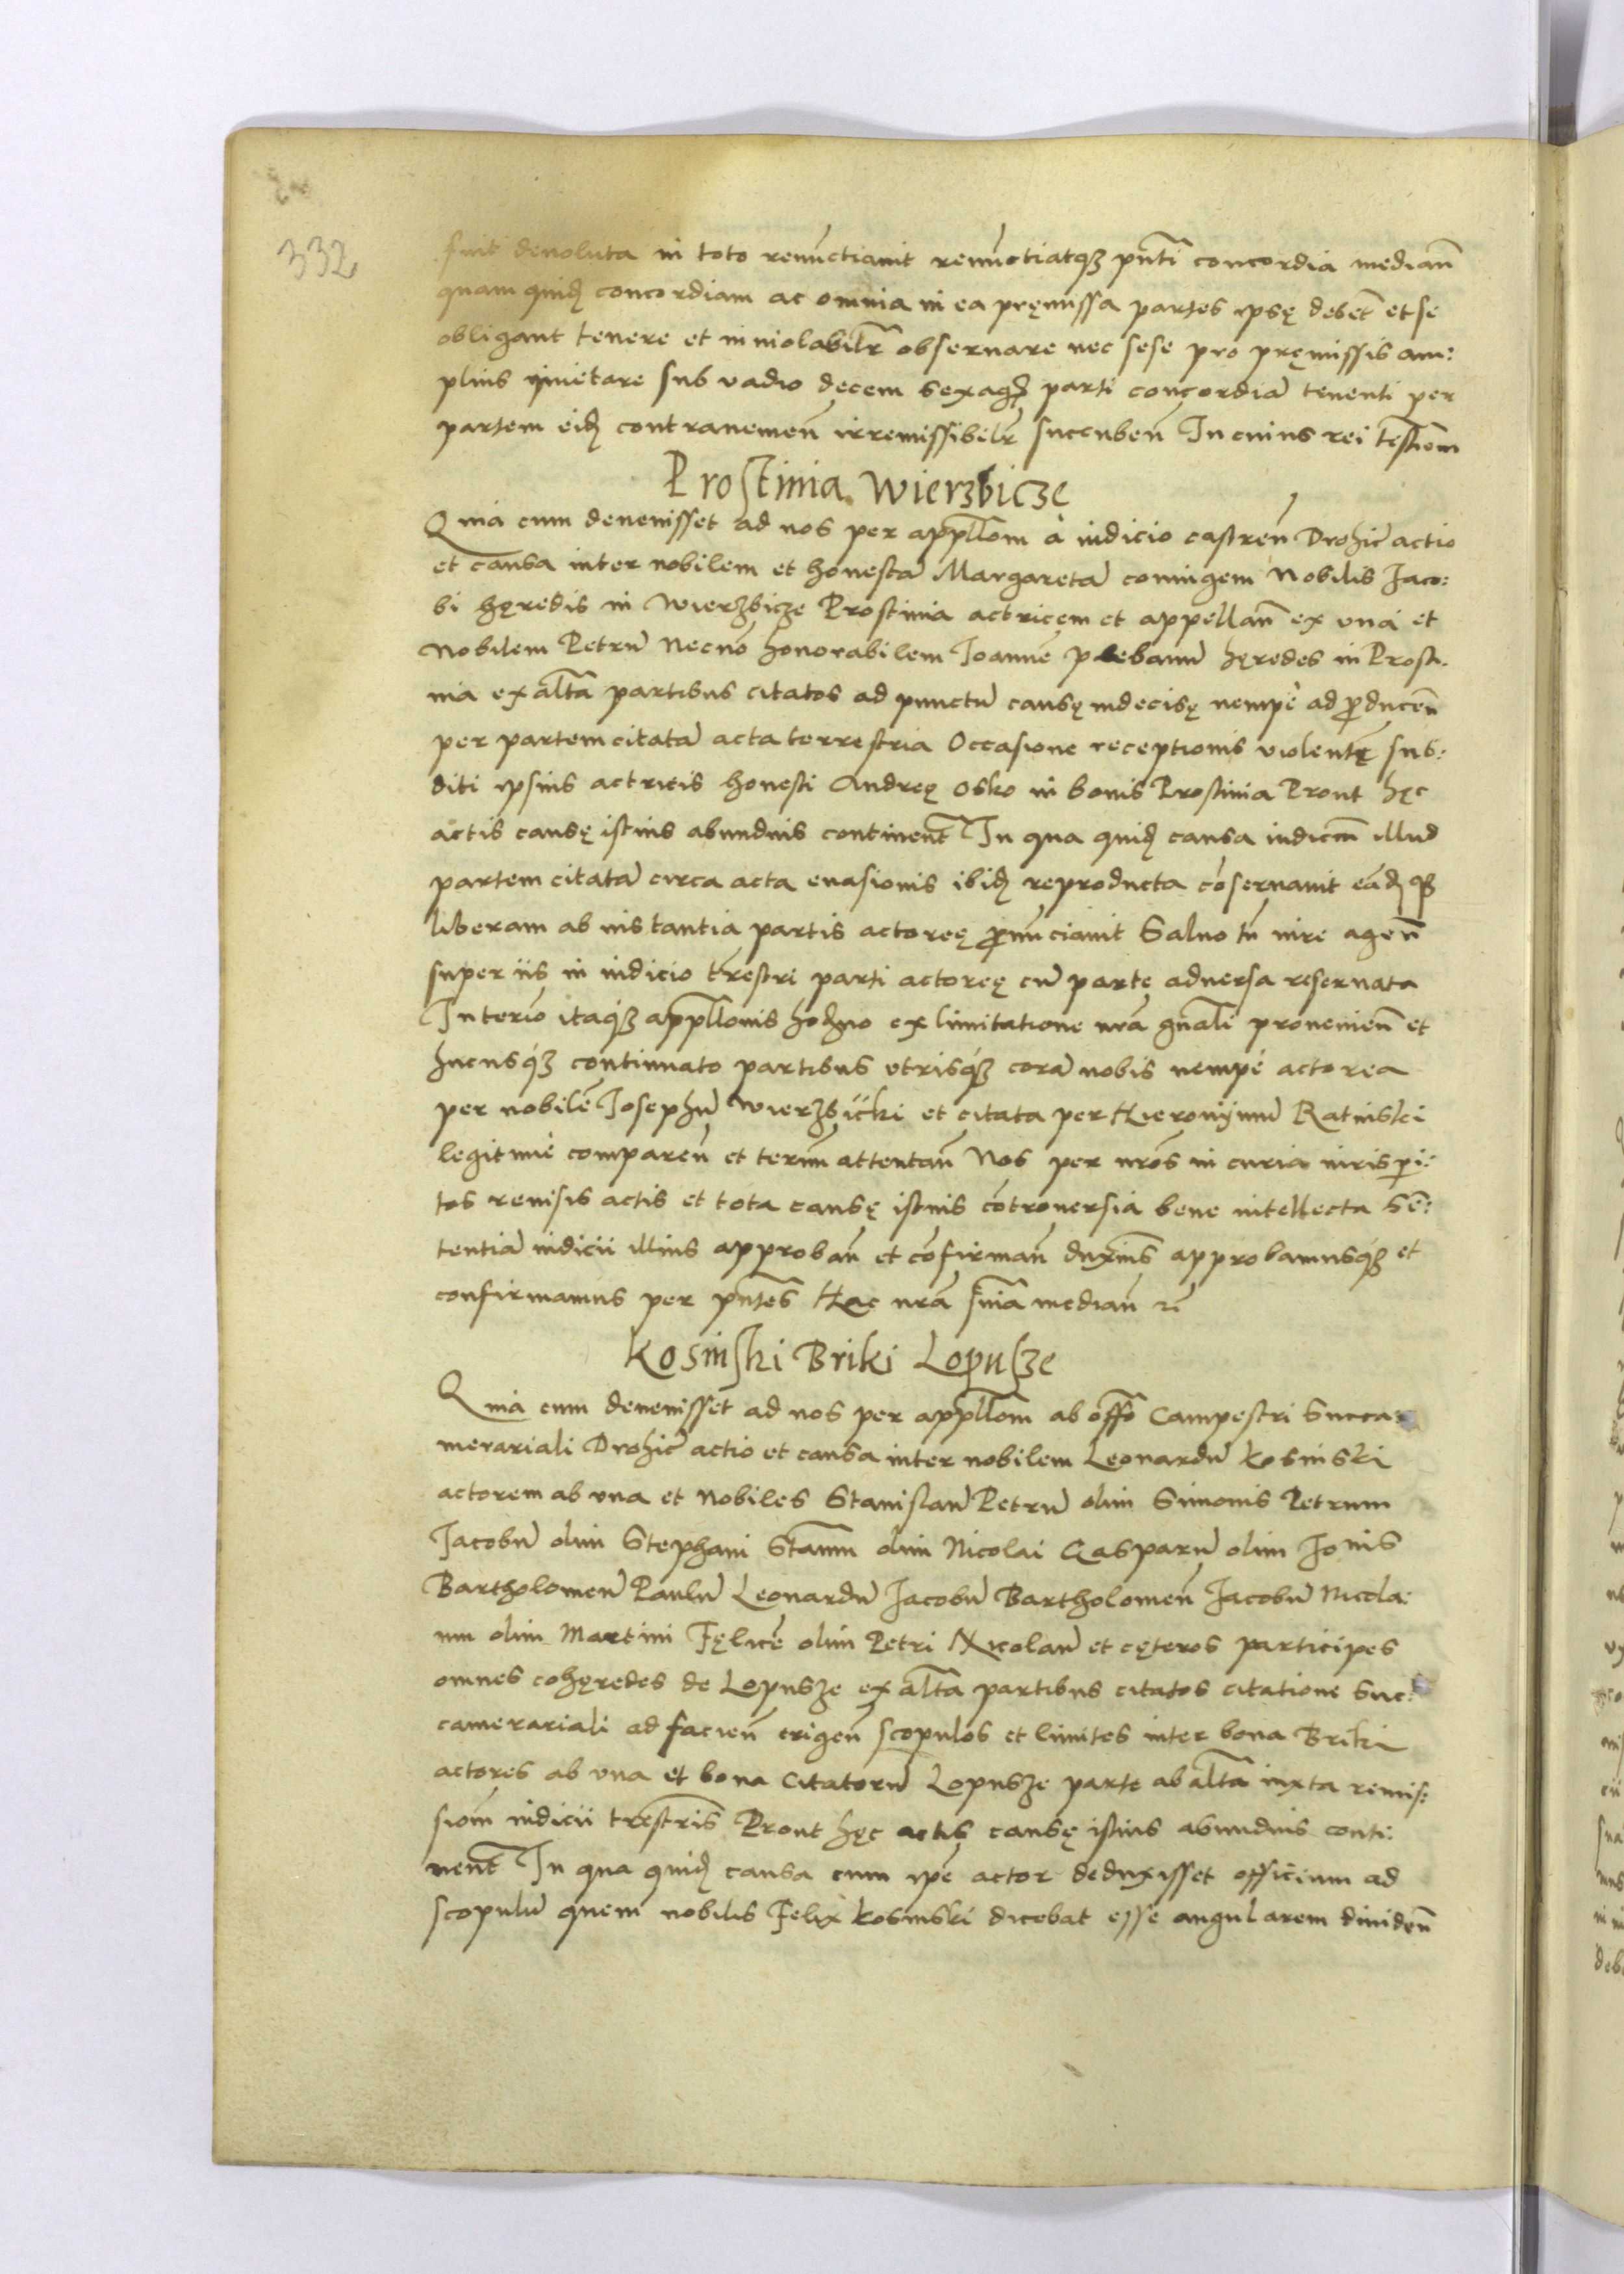 332
fuit deuoluta in toto renūctiauit renūctiatqȝ pn̄ti concordia median̄
quam quidȩ concordiam ac omnia in ea pręmissa partes ipsę debēt et se
obligant tenere et inuiolabilr̄ obseruare nec sese pro pręmissis am:
plius inquietare sub vadio decem sexagȝ parti concordiā tenenti per
partem eidȩ contrauenien̄ irremissibilr̄ succuben̄ In cuius rei testiom̄
Prostinia Wierzbicze
Quia cum deuenisset ad nos per appllom̄ à iudicio castren̄ Drohic̄ actio
et causa inter nobilem et honestā Margaretā coniugem Nobilis Jaco:
bi hęredis in Wierzbicze Prostinia actricem et appellan̄ ex vna et
Nobilem Petrū Necnō honorabilem Joannē plebanū hęredes in Prosti:
nia ex altā partibus citatos ad punctū causę indecisę nempè ad producen̄
per partem citatā acta terrestria Occasione receptionis violentę sub:
diti ipsius actricis honesti Andreę Osko in bonis Prostinia Prout hęc
actis causę istius abundius continent̄ In qua quidȩ causa iudicm̄ illud
partem citatā circa acta euasionis ibidȩ reproducta cōseruauit eādȩqȝ
liberam ab instantia partis actoreę pronūciauit Saluo tn̄ iure agen̄
super iis in iudicio trēstri parti actoreę cū parte aduersa reseruata
In terīo itaqȝ appllonis̄ hodno ex limitatione nrā gnāli prouenien̄ et
hucusqȝ continuato partibus vtrisqȝ corā nobis nempè actorea
per nobilē Josephū Wierzbicki et citata per Hieronijmū Ratinski
legitimè comparen̄ et termi attentan̄ Nos per nrōs in curia iurisperi:
tos reuisis actis et tota causę istius cōtrouersia bene intellecta Sē:
tentiā iudicii illius approban̄ et cōfirman̄ duxims̄ approbamusqȝ et
confirmamus per pn̄tes Hac nrā snīa median̄ rc̄
Kosinski Briki Lopusze
Quia cum deuenisset ad nos per appllom̄ ab offo Campestri Succa
merariali Drohic̄ actio et causa inter nobilem Leonardū Kosinski
actorem ab vna et Nobiles Stanislaū Petrū olim Simonis Petrum
Jacobū olim Stephani Stanm̄ olim Nicolai Casparū olim Jonis
Bartholomeū Paulū Leonardū Jacobū Bartholomeū Jacobū Nicola:
um olim Martini Fęlicē olim Petri Nicolaū et cęteros participes
omnes cohęredes de Lopusze ex altā partibus citatos citatione Suc:
camerariali ad facien̄ erigen̄ scopulos et limites inter bona Briki
actores ab vna et bona Citatorū Lopusze parte ab altā iuxta remis:
siom̄ iudicii trēstris Prout hęc actis causę istius abundius conti:
nent̄ In qua quidȩ causa cum ipē actor deduxisset officium ad
scopulū quem nobilis Felix Kosinski dicebat esse angularem diuiden̄